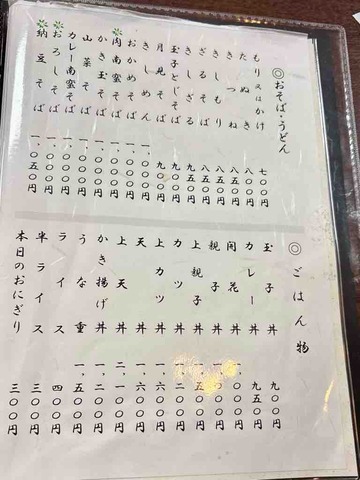 ◎おそば・うどん
もり又はかけ 七〇〇円
たぬき 八〇〇円
きつね 八五〇円
きしもり 八五〇円
ざるそば 八五〇円
きしざる 九五〇円
玉子とじそば 九〇〇円
月見そば 九〇〇円
きしめん 一、〇〇〇円
おかめそば 一、〇〇〇円
肉南蛮そば 一、〇〇〇円
かき玉そば 一、〇〇〇円
山菜そば 一、〇〇〇円
カレー南蛮そば 一、〇〇〇円
おろしそば 一、〇〇〇円
納豆そば 一、〇五〇円
◎ごはん物
玉子丼 九〇〇円
カレー丼 九五〇円
開花丼 一、〇〇〇円
親子丼 一、〇〇〇円
上親子丼
カツ丼 一、二〇〇円
上カツ丼 一、六〇〇円
天丼 一、六〇〇円
上天丼 二、一〇〇円
かき揚げ丼
うな重
ライス 四〇〇円
半ライス 三〇〇円
本日のおにぎり 三〇〇円